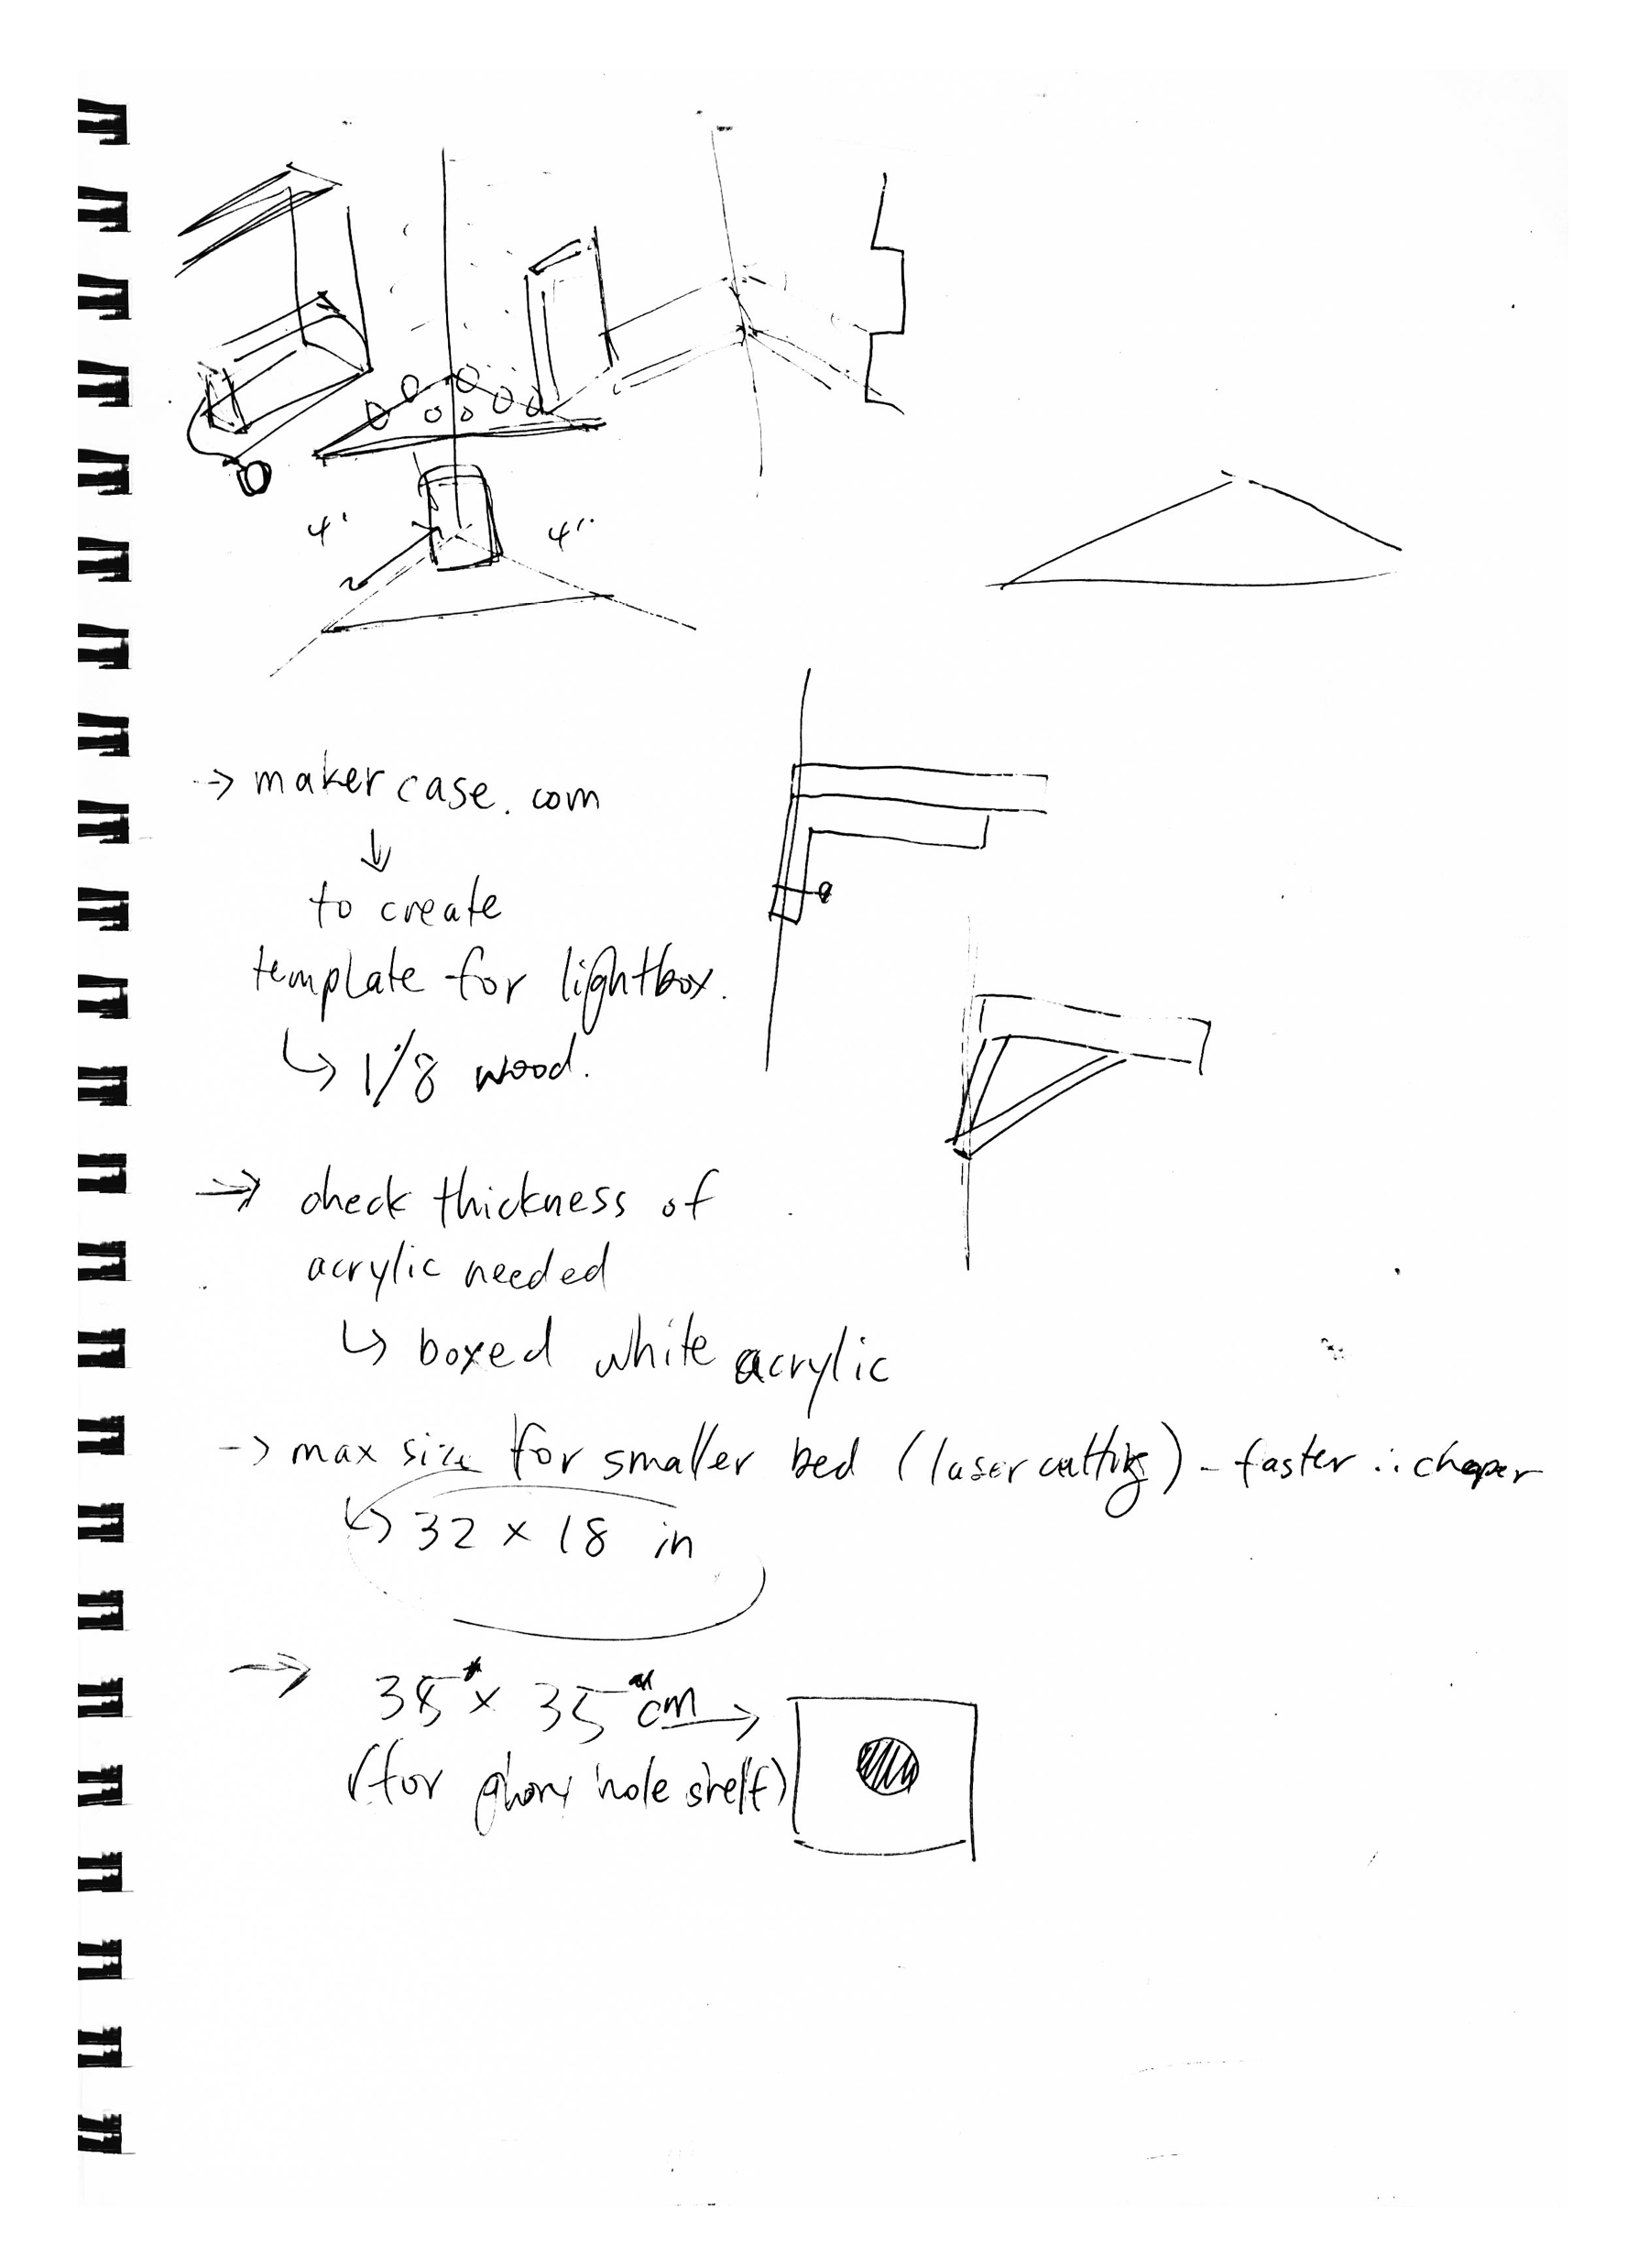 4' 4'
→ makercase.com
↓
to create
template for lightbox.
↳ 1/8 wood.
→ check thickness of
acrylic needed
↳ boxed white acrylic
→ max size for smaller bed (laser cutting) - faster ∴ cheaper
↳ 32 x 18 in
→ 35 x 35 cm →
(for glory hole shelf)